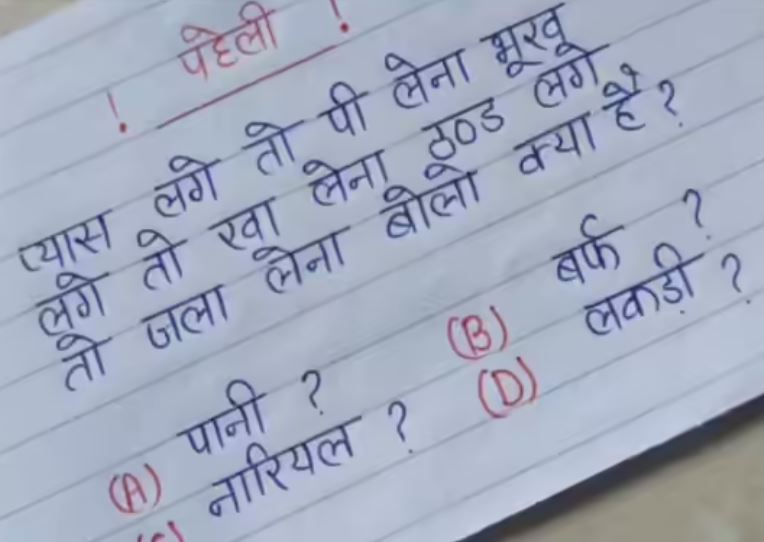 ! पहेली !
प्यास लगे तो पी लेना भूख
लगे तो खा लेना ठण्ड लगे
तो जला लेना बोलो क्या है ?
(A) पानी ? (B) बर्फ ?
(C) नारियल ? (D) लकड़ी ?